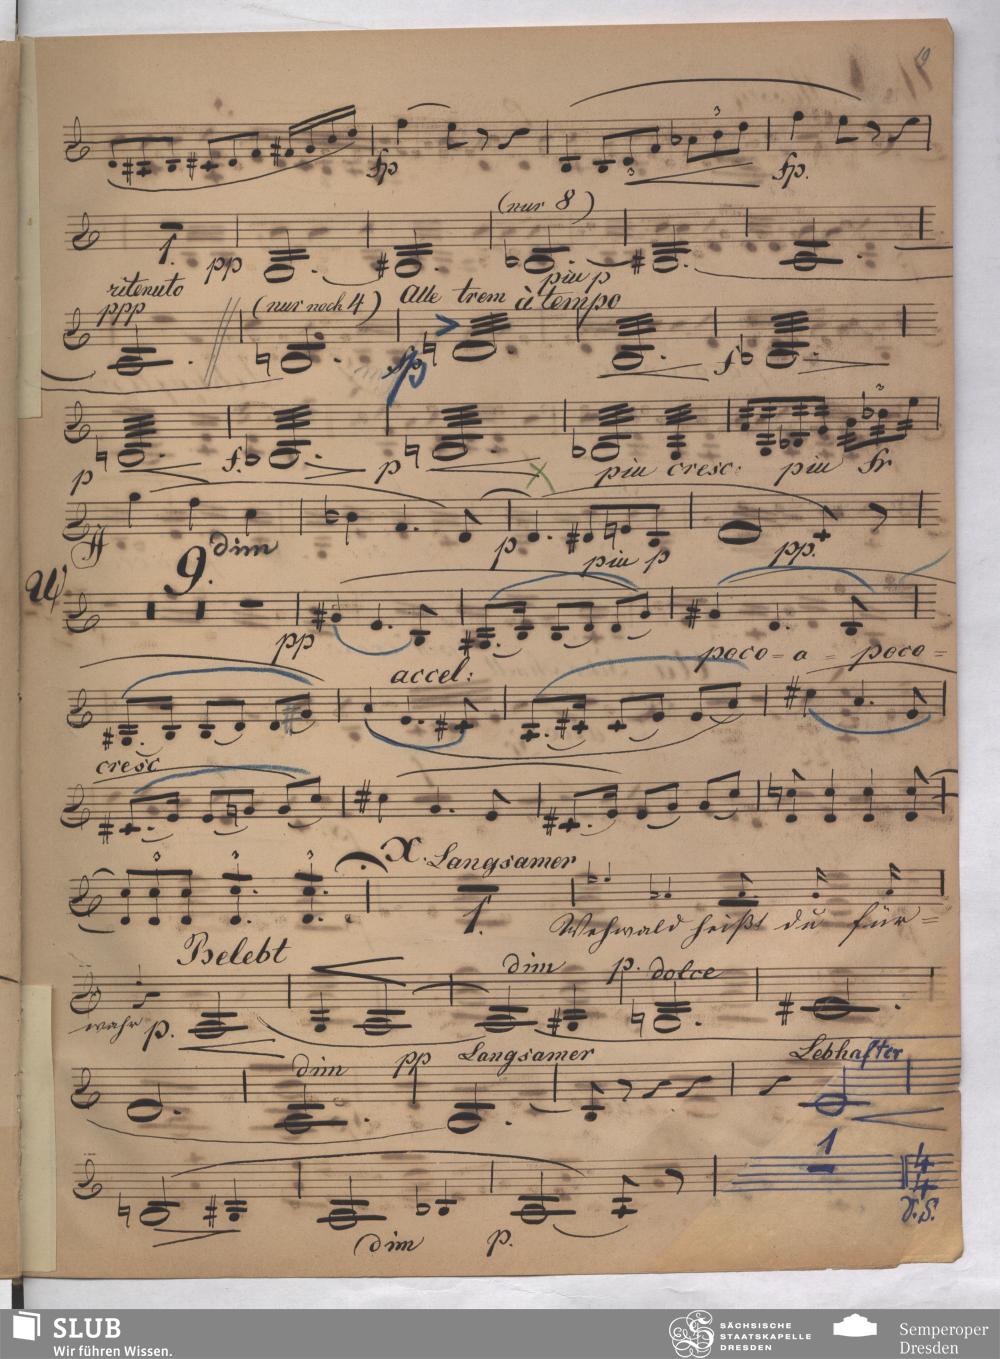 10
3
3
fp
fp.
(nur 8)
1.
pp
piu p
ritenuto
ppp
(nur noch 4)
Alle trem
à tempo
fp
f
p
f.
p
piu cresc:
piu fr
3
ff
dim
p
piu p
pp.
W
9.
pp
poco - a - poco -
accel:
cresc
3 3 3
X. Langsamer
1.
Wehwald heißt du für=
Belebt
dim
p. dolce
wahr
p.
dim
pp
Langsamer
Lebhafter
1
4
4
V.S.
dim
p.
SLUB
Wir führen Wissen.
SÄCHSISCHE
STAATSKAPELLE
DRESDEN
Semperoper
Dresden